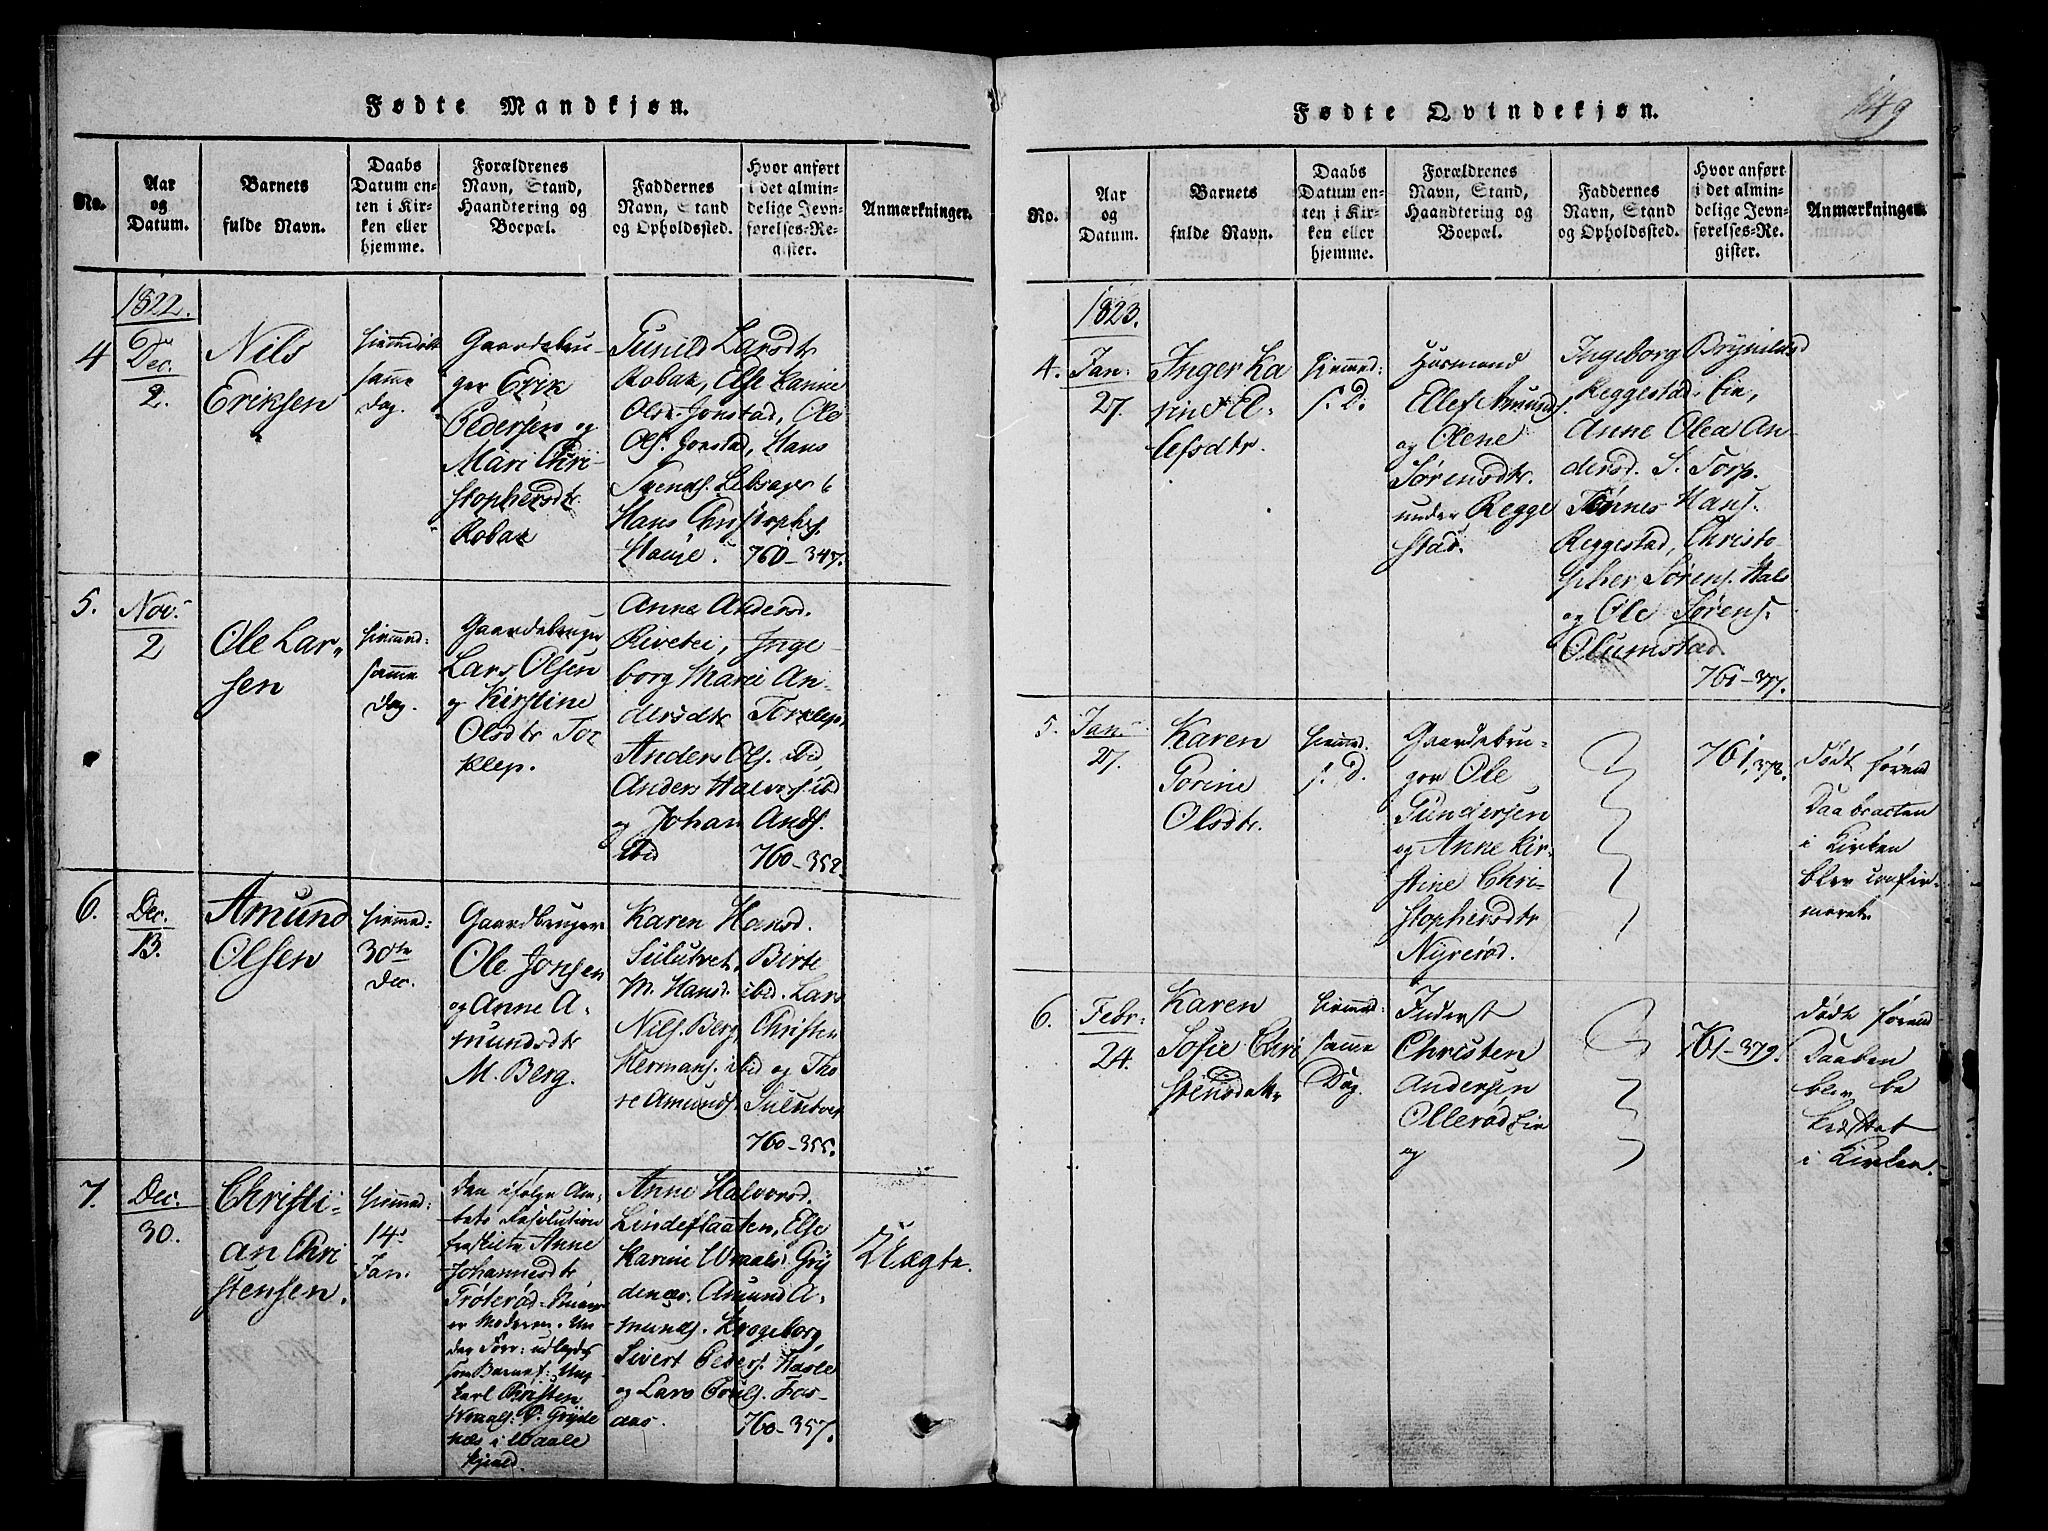 Fødte Mandkjøn.
No.
Aar
og
Datum.
Barnets
fulde Navn.
Daabs
Datum en-
ten i Kir-
ken eller
hjemme.
Forældrenes
Navn, Stand,
Haandtering og
Boepæl.
Faddernes
Navn, Stand
og Opholdssted.
Hvor anført
i det almin-
delige Jevn-
førelses-Re-
gister.
Anmærkninger.
1822.
4
Dec.
2.
Nils
Eriksen
hiemmedøbt
samme
Dag.
Gaardebru-
ger Erik
Pedersen og
Mari Chri-
stophersdtr
Robak
Gunild Larsdtr
Robak, Else Karine
Olsd. Jonstad, Ole
Ols. Jonstad, Hans
Svends.
Hans Christophs.
Hauge.
760-347.
5.
Nov.
2
Ole Lar-
sen
hiemmed:
samme
Dag.
Gaardebruger
Lars Olsen
og Kirstine
Olsdtr Tor
klep.
Anne Andersd.
Rivebei, Inge-
borg Marei An-
dersdtr Torklep.
Anders Ols. ibid,
Anders Halvors. ibd
og Johan Ands.
ibid
760-352.
6.
Dec.
13.
Amund
Olsen
hiemmed:
30te
Dec.
Gaardbruger
Ole Jonsen
og Anne A-
mundsdtr
M. Berg.
Karen Hansd.
Sulutvet, Birte
M. Hansd. ibid. Lars
Nils. Berg, Christen
Hermans. ibid og Tho
re Amunds. Sulutvet
760-355.
7.
Dec.
30.
Christi-
an Chri
stensen.
hiemmed:
14.
Jan.
Den ifølge Am-
tets Resolution
fraskilte Anne
Johannesdtr.
Trøterød
er Moderen. Un-
der Forr: udlagdes
som Barnef: Ung-
karl Christen
Wraals. P. Gryde
næs i Waale
Anne Halvorsd.
Lindeflaaten, Else
Karine Wraals. Gry
denæs. Amund A-
munds. Krogeborg,
Sivert Peders. Hasle
og Lars Pouls. Fos-
aas.
760-357.
Uægte.
Fødte Qvindekjøn.
149
No.
Aar
og
Datum.
Barnets
fulde Navn.
Daabs
Datum en-
ten i Kir-
ken eller
hjemme.
Forældrenes
Navn, Stand,
Haandtering og
Boepæl.
Faddernes
Navn, Stand
og Opholdssted.
Hvor anført
i det almin-
delige Jevn-
førelses-Re-
gister.
Anmærkninger.
1823.
4.
Jan:
27.
Inger Ka
rine El-
lefsdtr.
hiemmed:
s. D.
Huusmand
Ellef Amunds.
og Olene
Sørensdtr.
under Regge
stad.
Ingeborg Brynilsd
Reggestad Eie,
Anne Olea An-
dersd. S. Torp.
Tønnes Hans.
Reggestad, Christo-
pher Sørens. Hals
og Ole Sørens.
Olumstad
760-377.
5.
Jan.
27.
Karen
Gorine
Olsdtr.
hiemmed.
s. D.
Gaardebru-
ger Ole
Gundersen
og Anne Kir-
stine Chri-
stophersdtr
Nyrerød.
761,378.
Død førend
Daabractен
i Kirken
blev confir-
meret.
6.
Febr:
24.
Karen
Sofie Chri
stensdatter
hiemmed:
samme
Dag.
Inderst
Christen
Andersen
Ollerød Eie
og
761-379.
Døde førend
Daaben
blev be
kræftet
i Kirken.